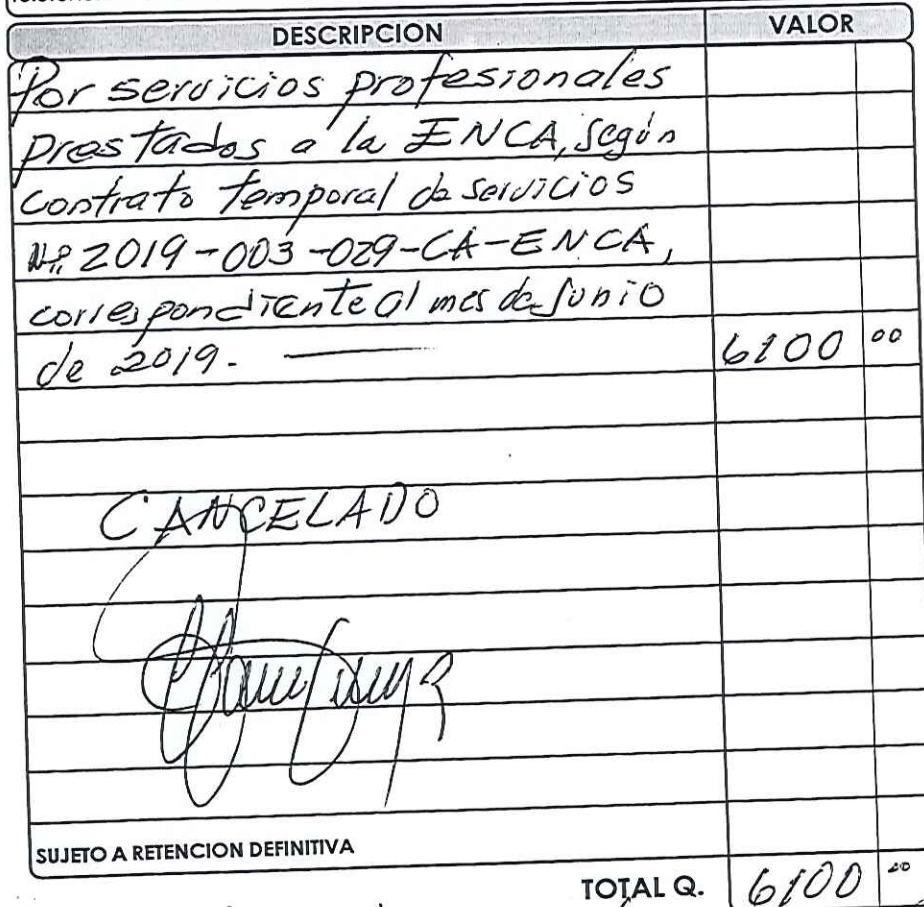 DESCRIPCION VALOR
Por servicios profesionales
prestados a la ENCA, según
contrato temporal de servicios
Nº 2019-003-029-CA-ENCA,
correspondiente al mes de Junio
de 2019. — 6100 00
CANCELADO
SUJETO A RETENCION DEFINITIVA
TOTAL Q. 6100 00